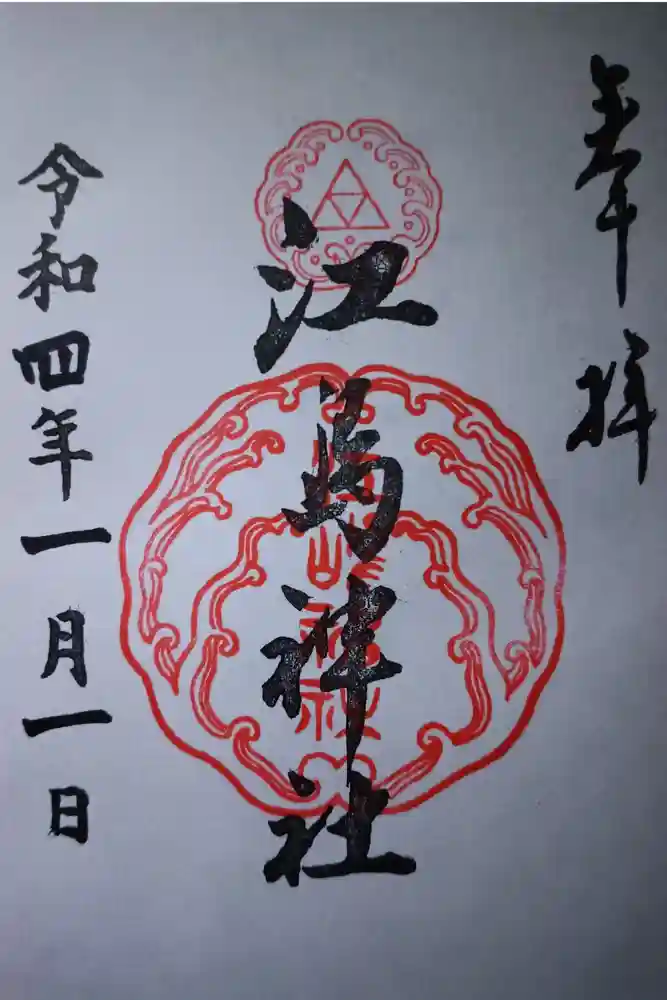 奉拝
江島神社
令和四年一月一日